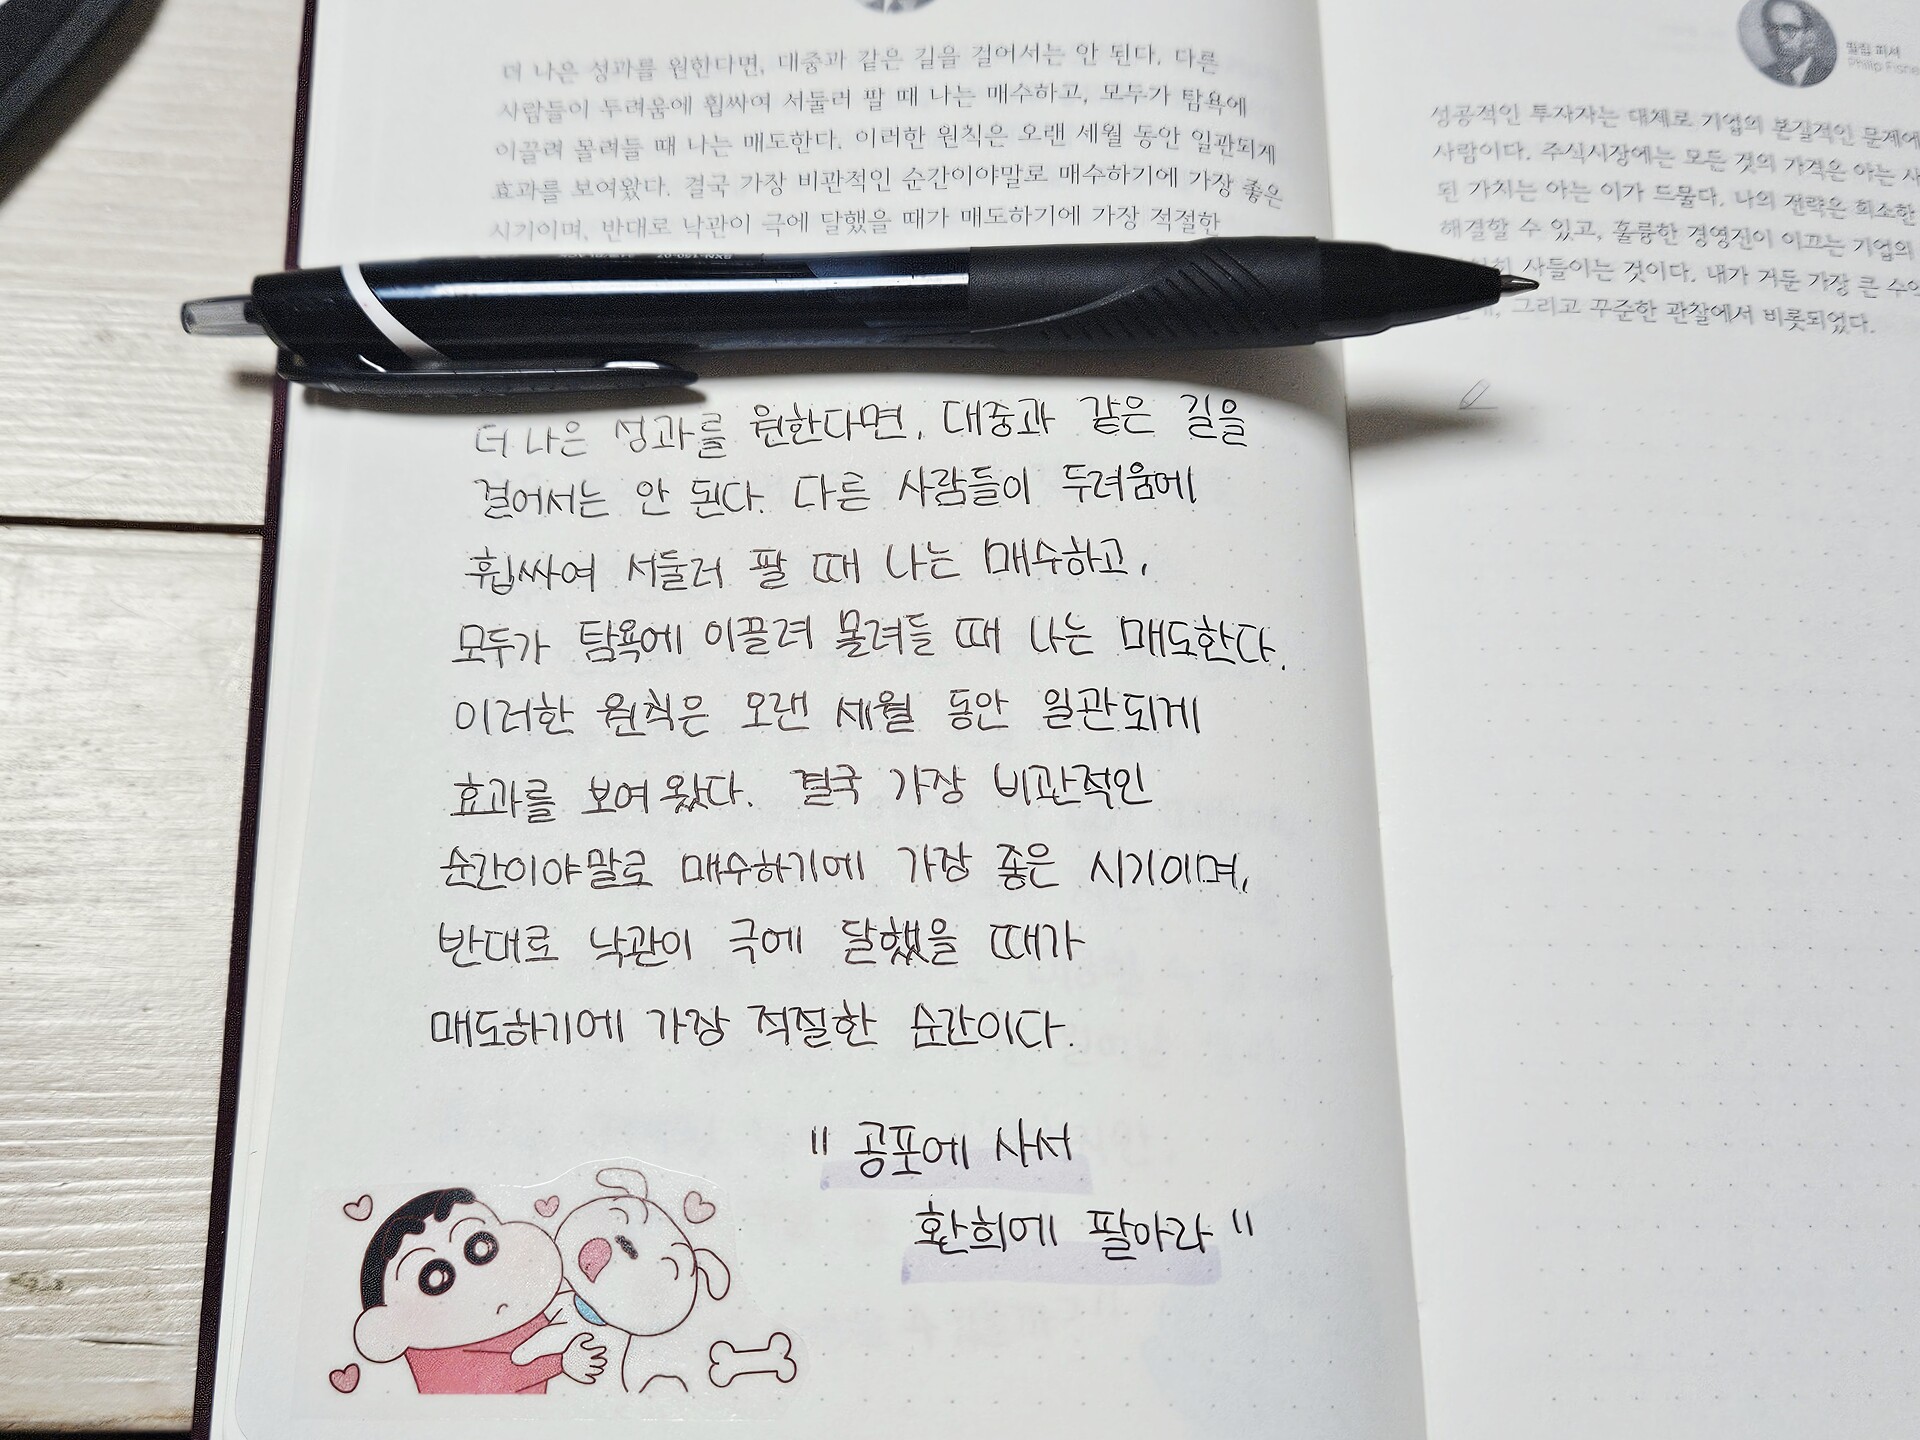 더 나은 성과를 원한다면, 대중과 같은 길을 걸어서는 안 된다. 다른
사람들이 두려움에 휩싸여 서둘러 팔 때 나는 매수하고, 모두가 탐욕에
이끌려 몰려들 때 나는 매도한다. 이러한 원칙은 오랜 세월 동안 일관되게
효과를 보여왔다. 결국 가장 비관적인 순간이야말로 매수하기에 가장 좋은
시기이며, 반대로 낙관이 극에 달했을 때가 매도하기에 가장 적절한
더 나은 성과를 원한다면, 대중과 같은 길을
걸어서는 안 된다. 다른 사람들이 두려움에
휩싸여 서둘러 팔 때 나는 매수하고,
모두가 탐욕에 이끌려 몰려들 때 나는 매도한다.
이러한 원칙은 오랜 세월 동안 일관되게
효과를 보여왔다. 결국 가장 비관적인
순간이야말로 매수하기에 가장 좋은 시기이며,
반대로 낙관이 극에 달했을 때가
매도하기에 가장 적절한 순간이다.
"공포에 사서
환희에 팔아라"
필립 피셔
Philip Fishe
성공적인 투자자는 대체로 기업의 본질적인 문제에
사람이다. 주식시장에는 모든 것의 가격은 아는 사
된 가치는 아는 이가 드물다. 나의 전략은 희소한
해결할 수 있고, 훌륭한 경영진이 이끄는 기업의
사들이는 것이다. 내가 거둔 가장 큰 수익
그리고 꾸준한 관찰에서 비롯되었다.